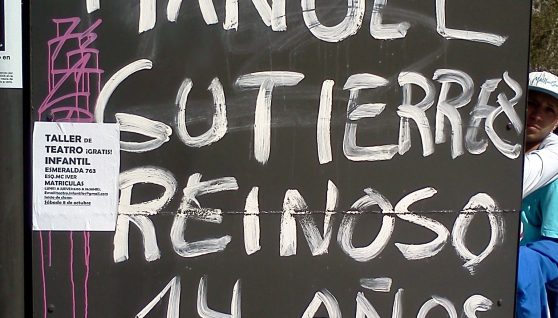 MANUEL
GUTIERREZ
REINOSO,
14 AÑOS
en
TALLER DE
TEATRO ¡GRATIS!
INFANTIL
ESMERALDA 763
ESQ.MC IVER
MATRICULAS